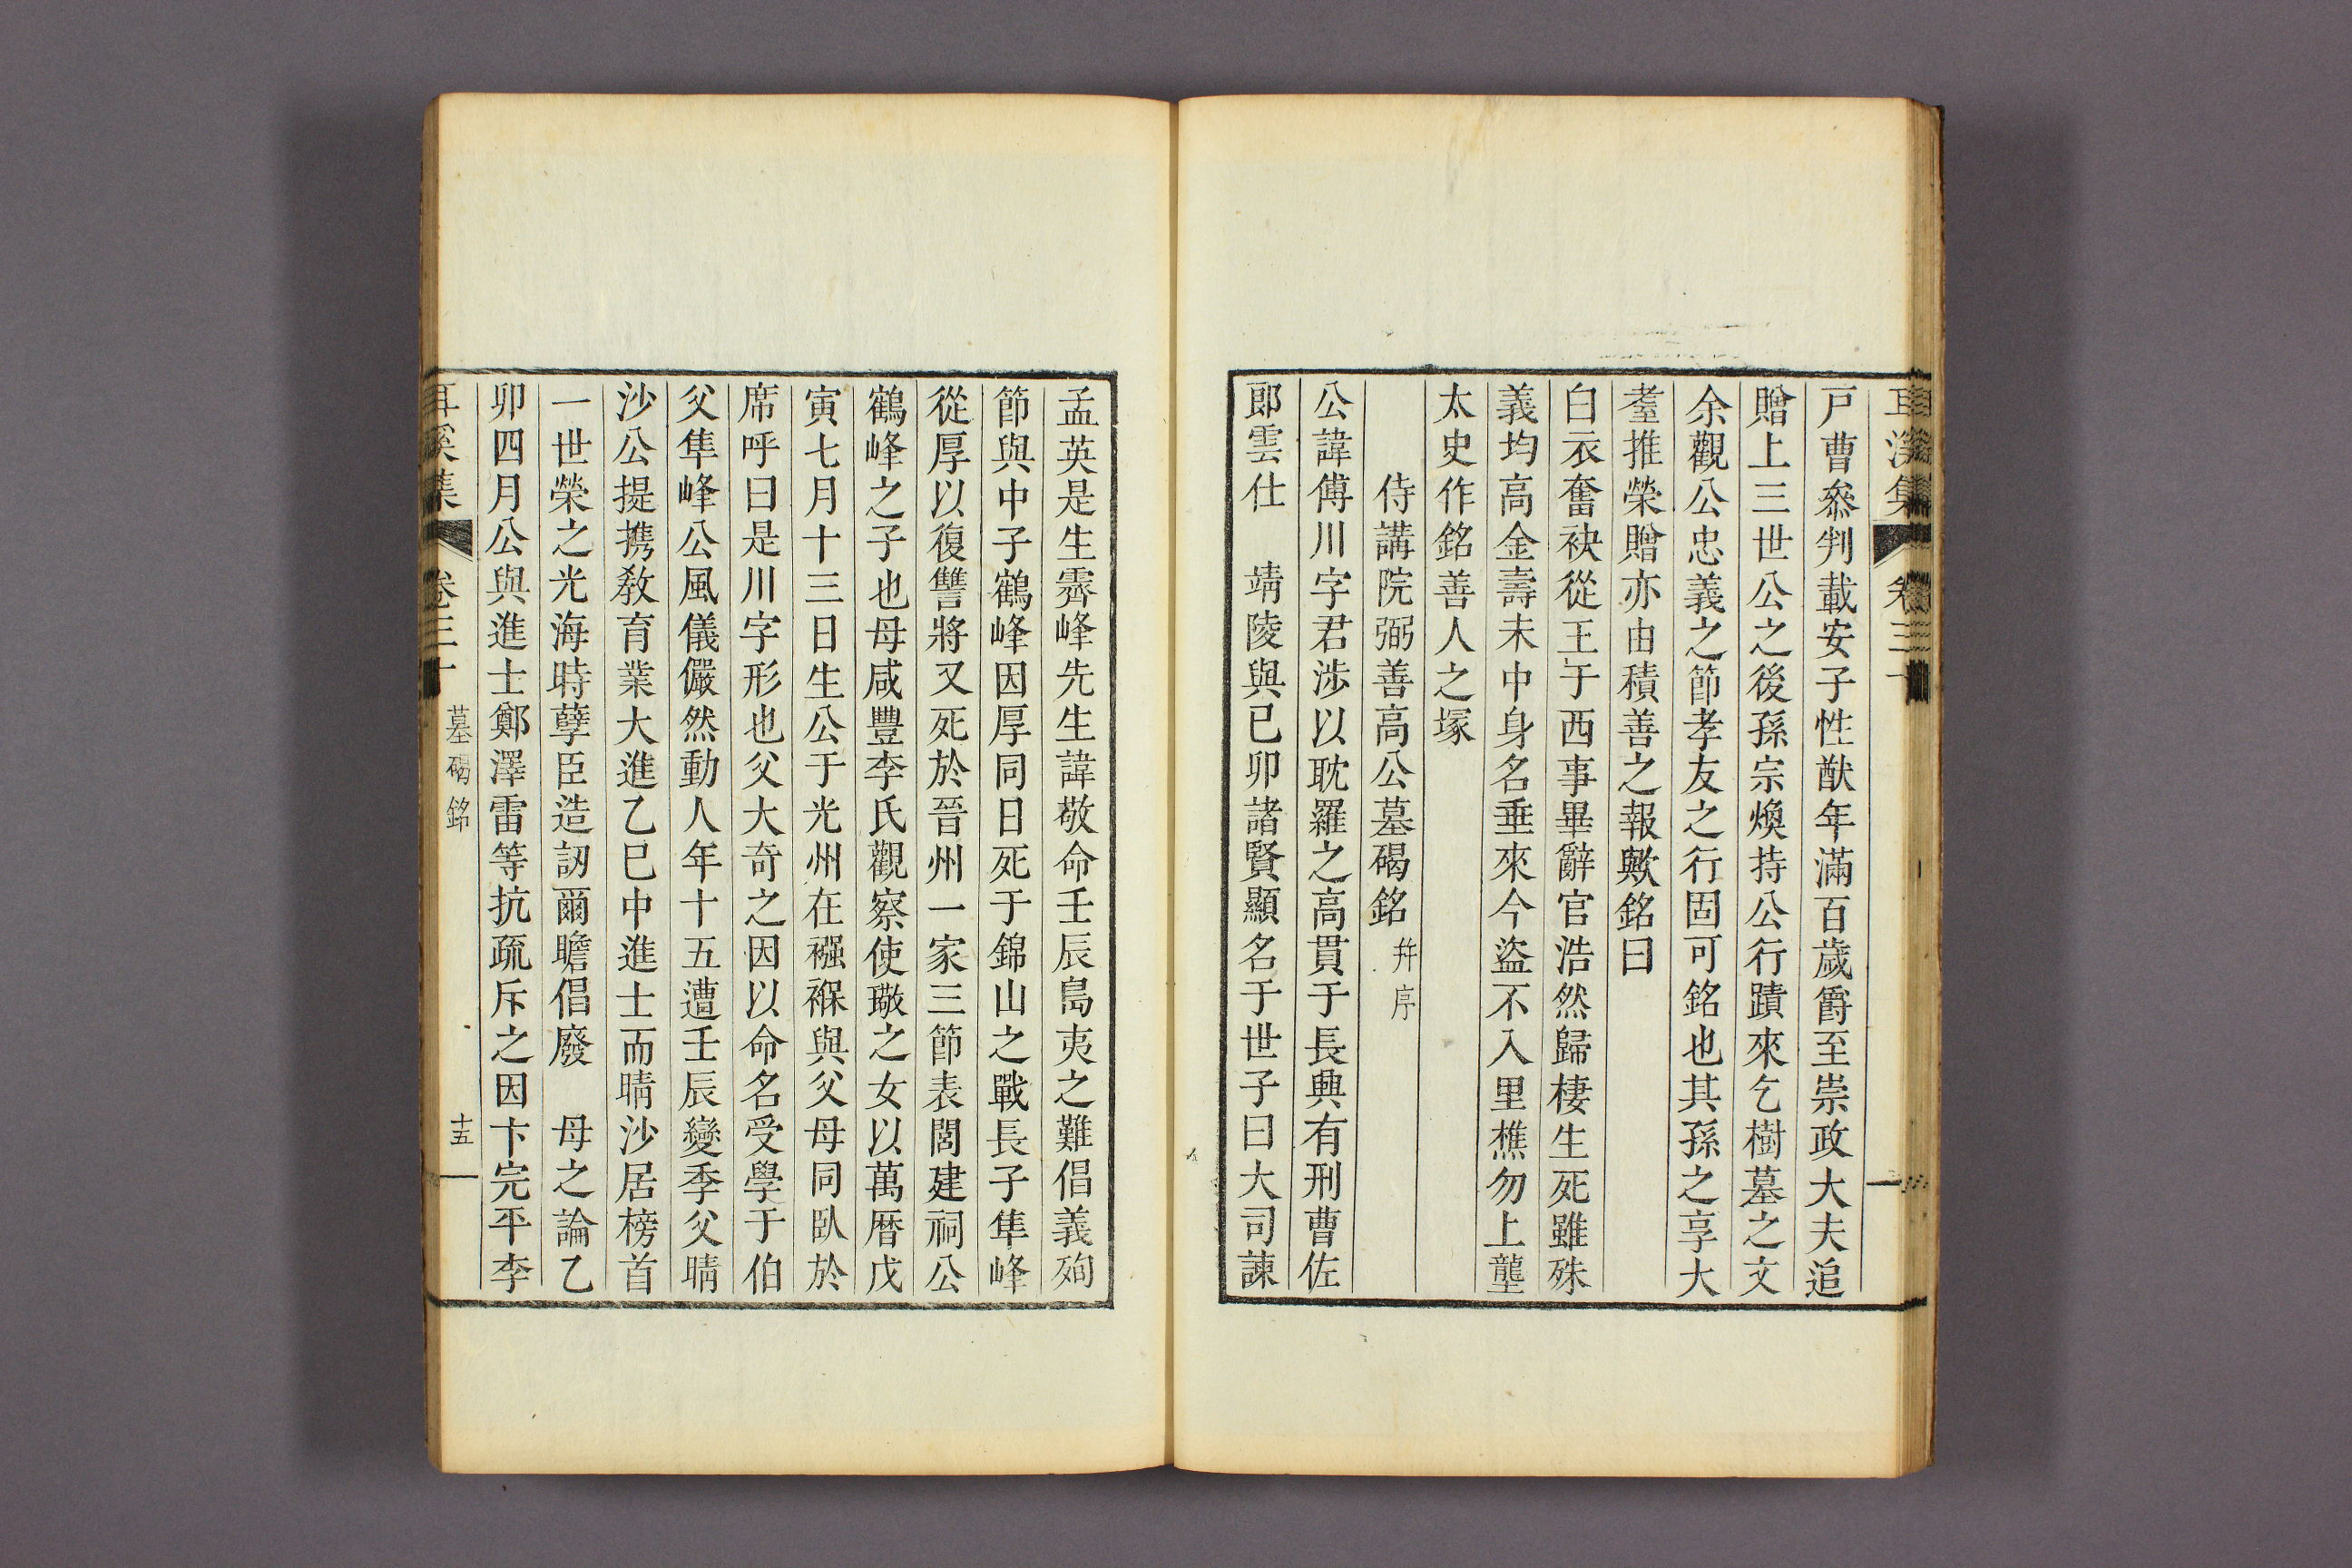 戸曹叅判載安子性猷年滿百歲爵至崇政大夫追
贈上三世公之後孫宗煥持公行蹟來乞樹墓之文
余觀公忠義之節孝友之行固可銘也其孫之享大
耋推榮贈亦由積善之報歟銘曰
白衣奮袂從王于西事畢辭官浩然歸棲生死雖殊
義均高金壽未中身名垂來今盜不入里樵勿上壟
太史作銘善人之塚
侍講院弼善高公墓碣銘 幷序
公諱傅川字君涉以耽羅之高貫于長興有刑曹佐
郎雲仕 靖陵與己卯諸賢顯名于世子曰大司諫
孟英是生霽峰先生諱敬命壬辰島夷之難倡義殉
節與中子鶴峰因厚同日死于錦山之戰長子隼峰
從厚以復讐將又死於晉州一家三節表閭建祠公
鶴峰之子也母咸豐李氏觀察使璥之女以萬曆戊
寅七月十三日生公于光州在襁褓與父母同臥於
席呼曰是川字形也父大奇之因以命名受學于伯
父隼峰公風儀儼然動人年十五遭壬辰變季父晴
沙公提携敎育業大進乙巳中進士而晴沙居榜首
一世榮之光海時孽臣造訒爾瞻倡廢 母之論乙
卯四月公與進士鄭澤雷等抗疏斥之因卞完平李
耳溪集 卷三十 墓碣銘 十五